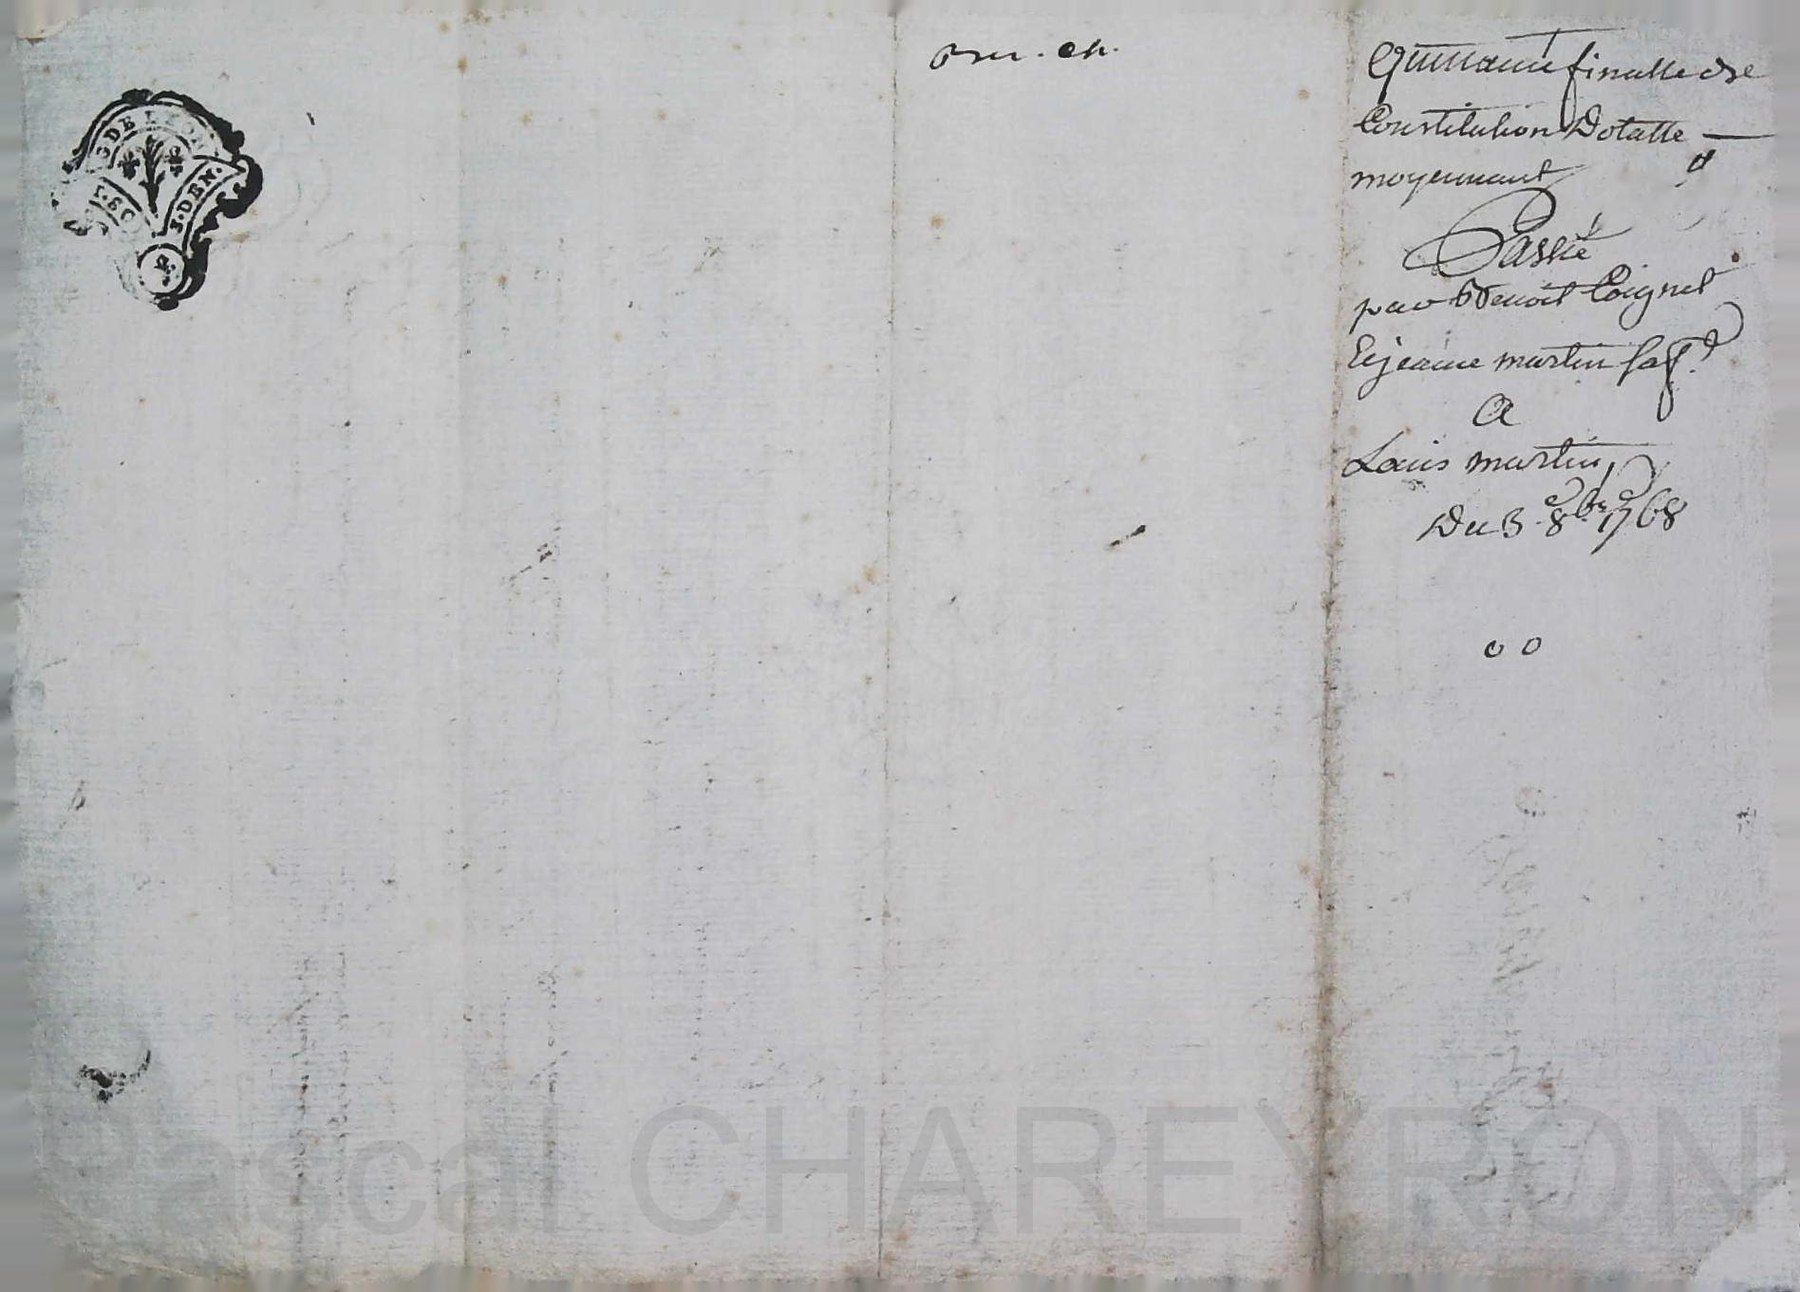 G. DE LYON
3. DEN.
Quittance finalle de
Constitution Dotalle
moyennant
Passée
par Benoit Coignet
Et jeanne martin sa f.e
A
Louis martin
Du 3e 8bre 1768
Pascal CHAREYRON